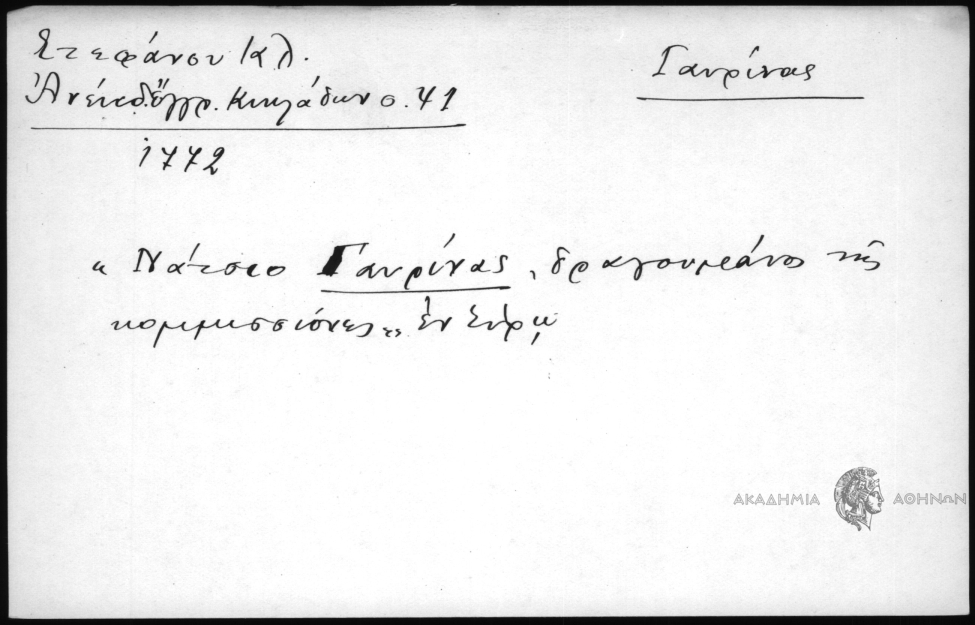 Στεφάνου Κλ.
Γαυρίνας
Ἀνέκδ. ἔγγρ. Κυκλάδων σ. 41
1772
« Νάτσιο Γαυρίνας, δραγουμάνος τῆς
κομμισσιόνες „ ἐν Σύρῳ
ΑΚΑΔΗΜΙΑ ΑΘΗΝΩΝ